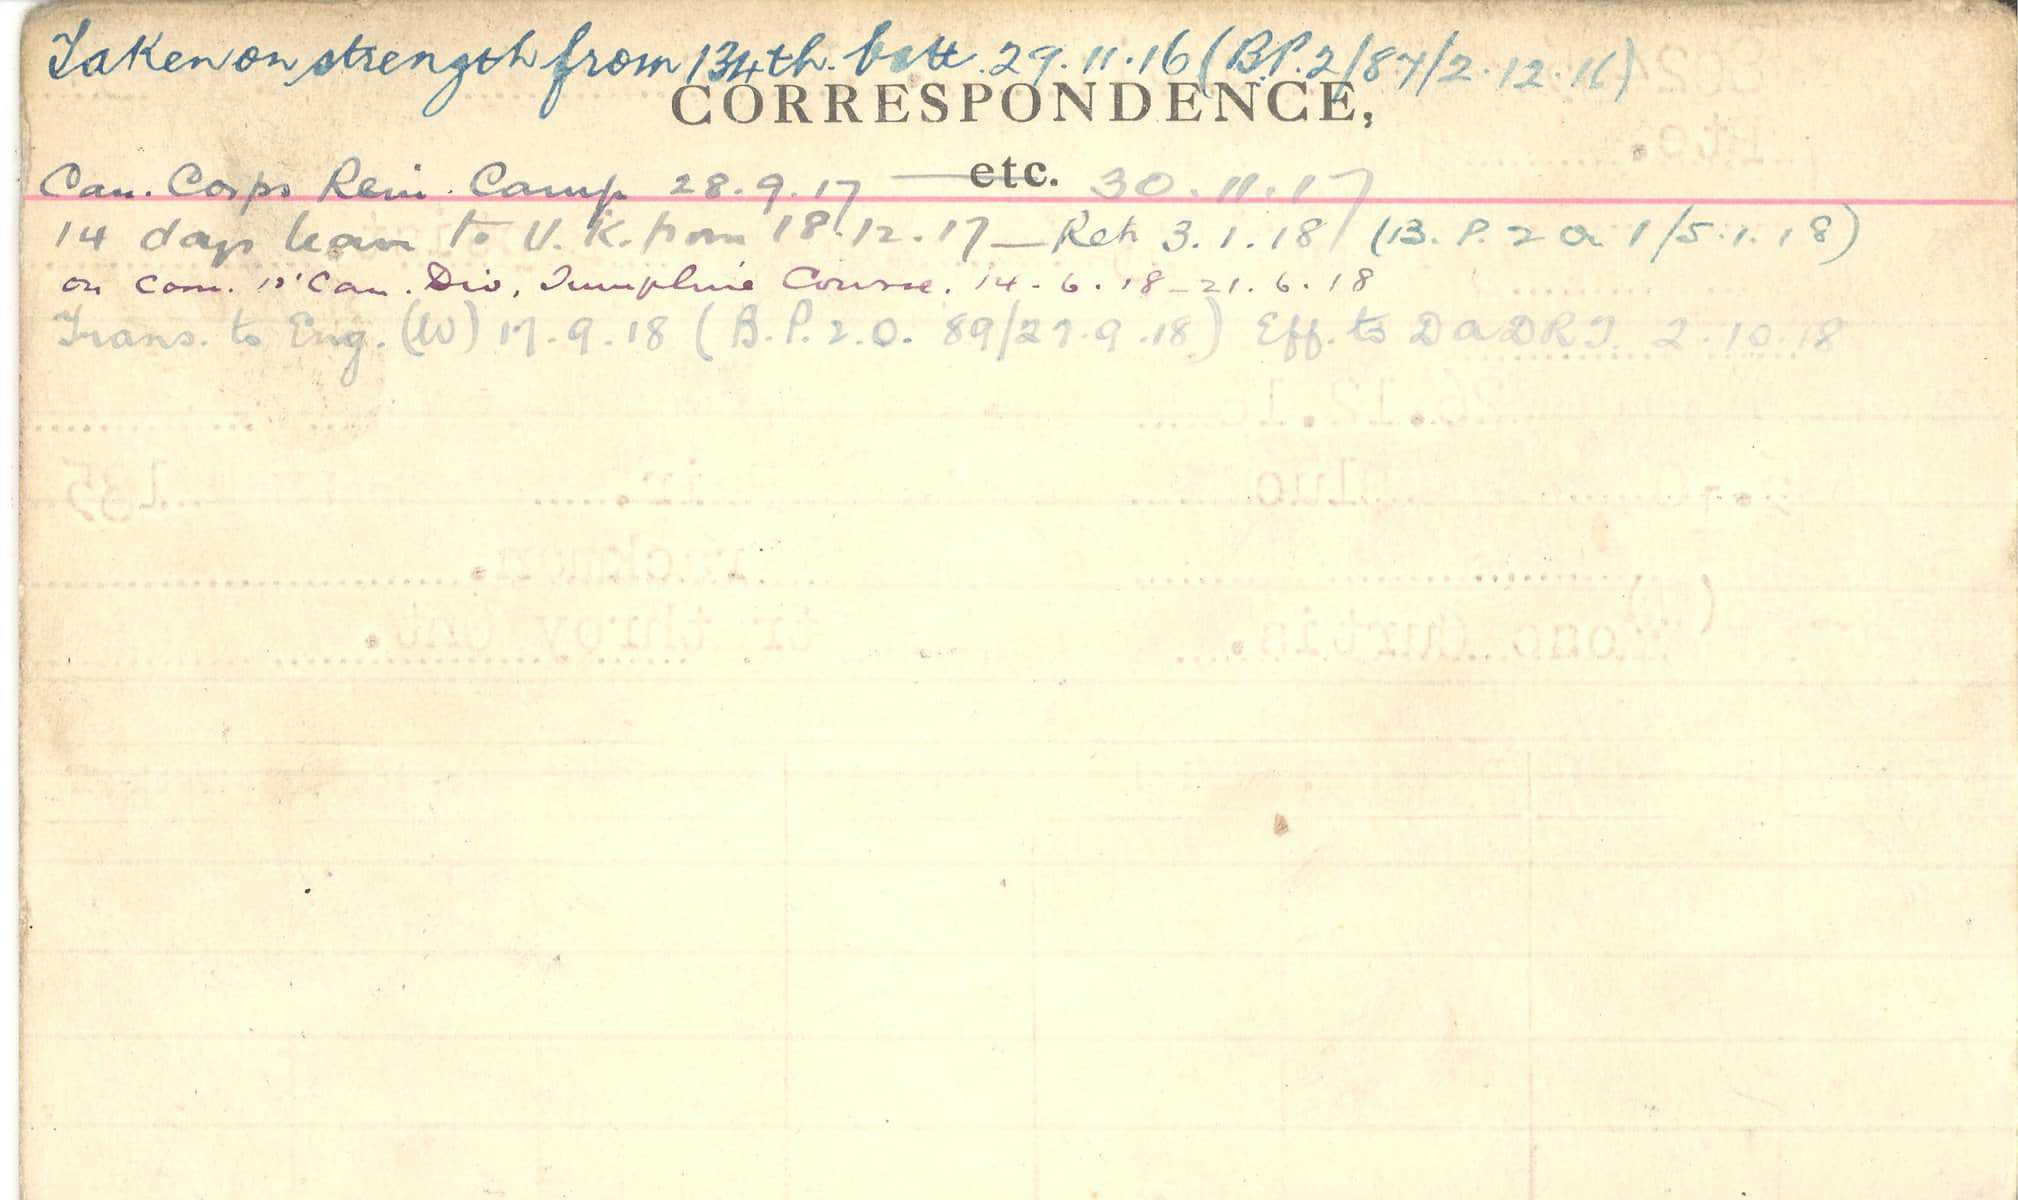 Taken on strength from 134th. batt. 29.11.16 (B.P.2/87/2.12.16)
CORRESPONDENCE,
etc.
Can. Corps Rein. Camp 28.9.17 — 30.11.17
14 days leave to U.K. from 18.12.17 — Ret 3.1.18 (B.P. 2 O 1/5.1.18)
on com. 1st Can. Div. Tumpline Course. 14.6.18 - 21.6.18
Trans. to Eng. (W) 17.9.18 (B.P.2.O. 89/27.9.18) Eff. to DADRT. 2.10.18